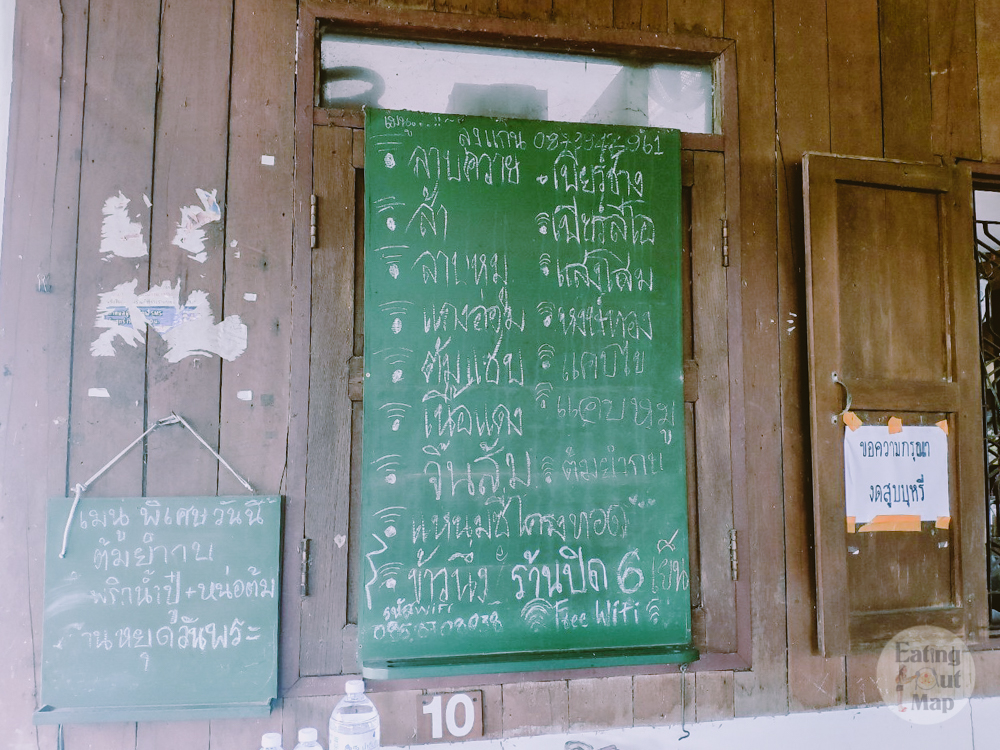 เมนู...!!
ลาบควาย
ส้า
ลาบหมู
แกงอ่อม
ต้มแซ่บ
เนื้อแดง
จิ้นส้ม
แหนมซี่โครงทอด
ข้าวนึ่ง
รหัส WiFi
เบียร์ช้าง
เบียร์ลีโอ
แสงโสม
หงษ์ทอง
แคบไข
แคบหมู
ต้มยำกบ
ร้านปิด 6 เย็น
Free WiFi
เมนู พิเศษวันนี้
ต้มยำกบ
พริกน้ำปู๋+หน่อต้ม
ร้านหยุดวันพระ
ขอความกรุณา
งดสูบบุหรี่
10
Eating Out Map